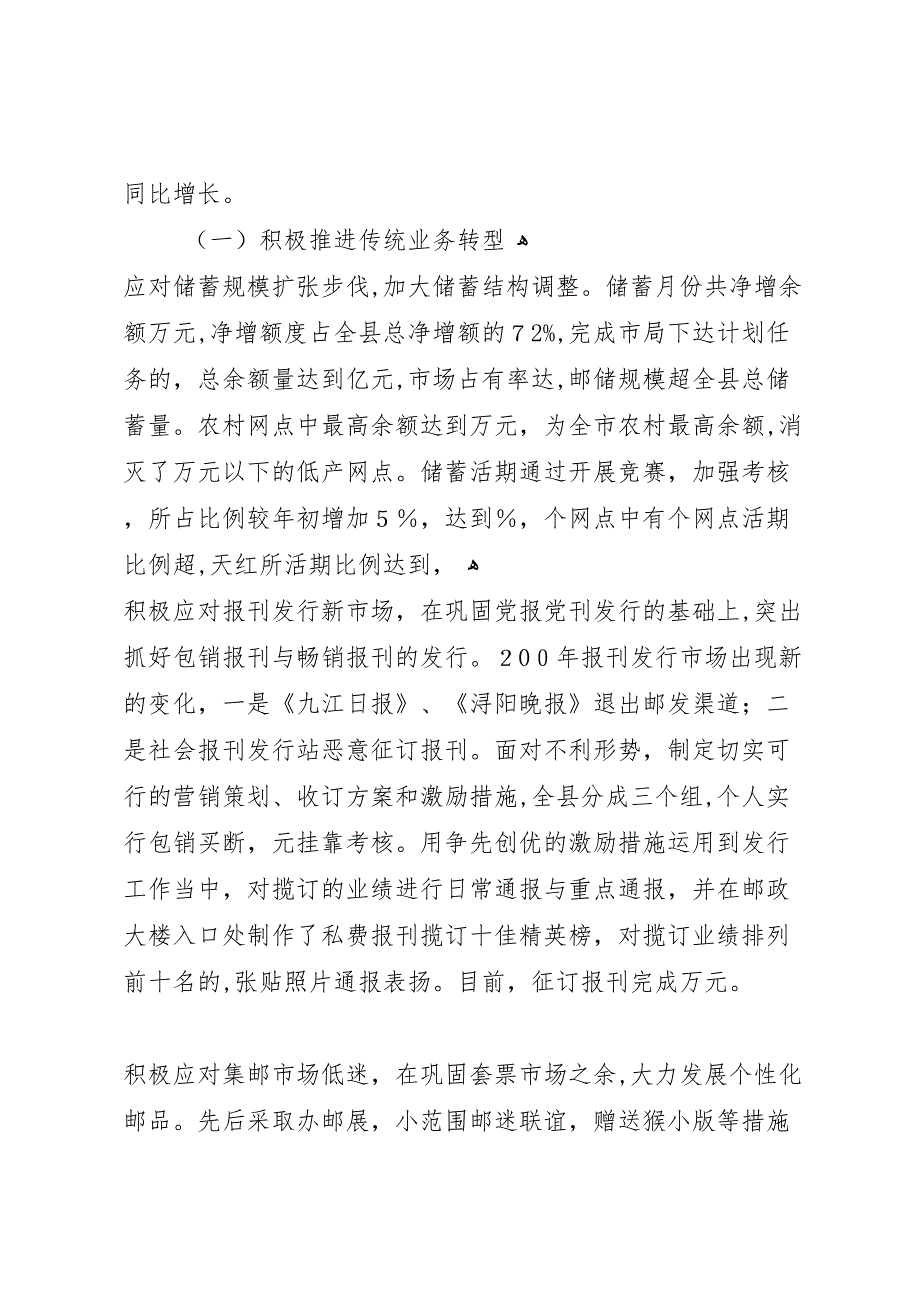 同比增长。
（一）积极推进传统业务转型 ﻫ
应对储蓄规模扩张步伐,加大储蓄结构调整。储蓄月份共净增余
额万元,净增额度占全县总净增额的７2%,完成市局下达计划任
务的，总余额量达到亿元,市场占有率达,邮储规模超全县总储
蓄量。农村网点中最高余额达到万元，为全市农村最高余额,消
灭了万元以下的低产网点。储蓄活期通过开展竞赛，加强考核
，所占比例较年初增加５％，达到％，个网点中有个网点活期
比例超,天红所活期比例达到， ﻫ
积极应对报刊发行新市场，在巩固党报党刊发行的基础上,突出
抓好包销报刊与畅销报刊的发行。２００年报刊发行市场出现新
的变化，一是《九江日报》、《浔阳晚报》退出邮发渠道；二
是社会报刊发行站恶意征订报刊。面对不利形势，制定切实可
行的营销策划、收订方案和激励措施,全县分成三个组,个人实
行包销买断，元挂靠考核。用争先创优的激励措施运用到发行
工作当中，对揽订的业绩进行日常通报与重点通报，并在邮政
大楼入口处制作了私费报刊揽订十佳精英榜，对揽订业绩排列
前十名的,张贴照片通报表扬。目前，征订报刊完成万元。
积极应对集邮市场低迷，在巩固套票市场之余,大力发展个性化
邮品。先后采取办邮展，小范围邮迷联谊，赠送猴小版等措施